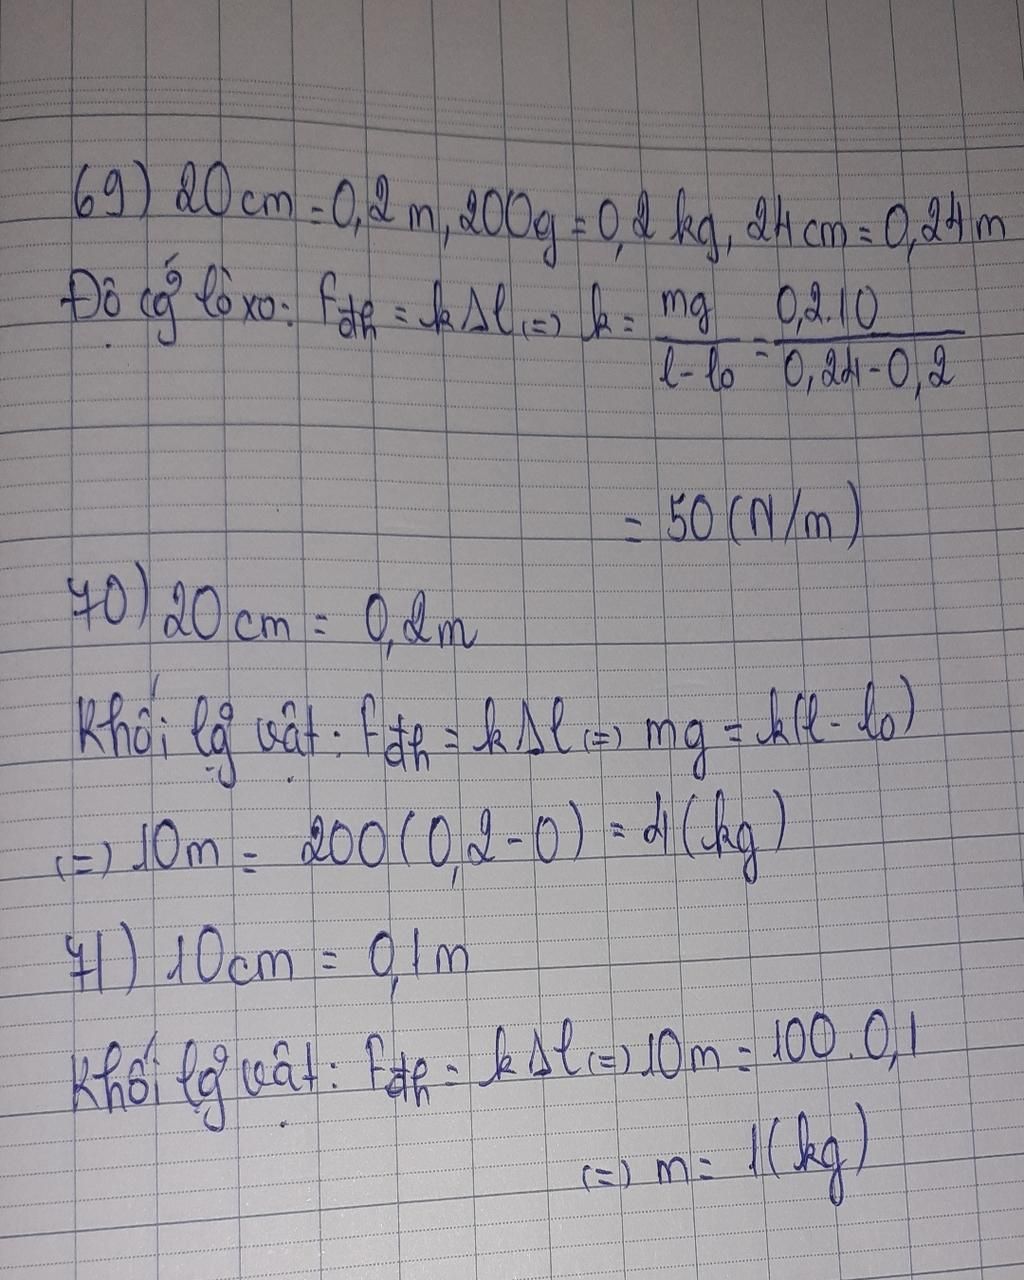 69) 20cm = 0,2m, 200g = 0,2 kg, 24cm = 0,24m
Độ cg lò xo: Fđh = kΔl (=) k = mg / l - l0 = 0,2.10 / 0,24 - 0,2
= 50 (N/m)
70) 20cm = 0,2m
Khối lg vật: Fđh = kΔl (=) mg = k(l - l0)
(=) 10m = 200(0,2 - 0) = 4(kg)
71) 10cm = 0,1m
Khối lg vật: Fđh = kΔl (=) 10m = 100.0,1
(=) m = 1(kg)